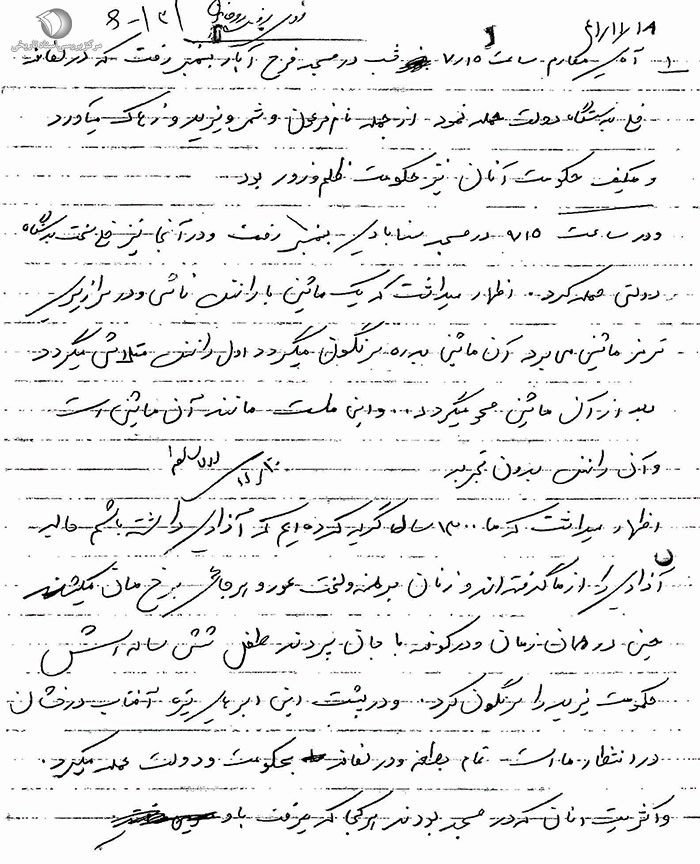 مرکز بررسی اسناد تاریخی
۱- آقای مکارم ساعت ۷/۱۵ شب در مسجد فرح آباد بمنبر رفت که در لفافه
خیلی به دستگاه دولت حمله نمود. از جمله نام فرعون و شمر و یزید و زهاک میآورد
و میگفت حکومت آنان نیز حکومت ظلم و زور بود
و در ساعت ۹/۱۵ در مسجد سنابادی بمنبر رفت و در آنجا نیز خیلی سخت بدستگاه
دولتی حمله کرد. اظهار میداشت که یک ماشین با رانندۀ ناشی و در سرازیری
ترمز ماشین می برد آن ماشین بدره سرنگون میگردد اول راننده متلاشی میگردد
بعد از آن ماشین محو میگردد.. و این ملت مانند آن ماشین است
و آن راننده بدون تجربه
اظهار میداشت که ما ۱۳۰۰ سال گریه کرده ایم که آزادی داشته باشیم حالیه
آزادی را از ما گرفته اند و زنان برهنه و لخت عور و ابرجانی برخ مان میکشند
حسین در همان زمان و در کوفه با جان سپردن طفل شش ساله اش
حکومت یزید را سرنگون کرد. و در پشت این ابرهای تیره آفتاب درخشان
در انتظار ما است. تمام بطعنه و در لفافه بحکومت و دولت حمله میکرد.
و اکثریت آنان که در مسجد بودند هر کجا که میرفت با او